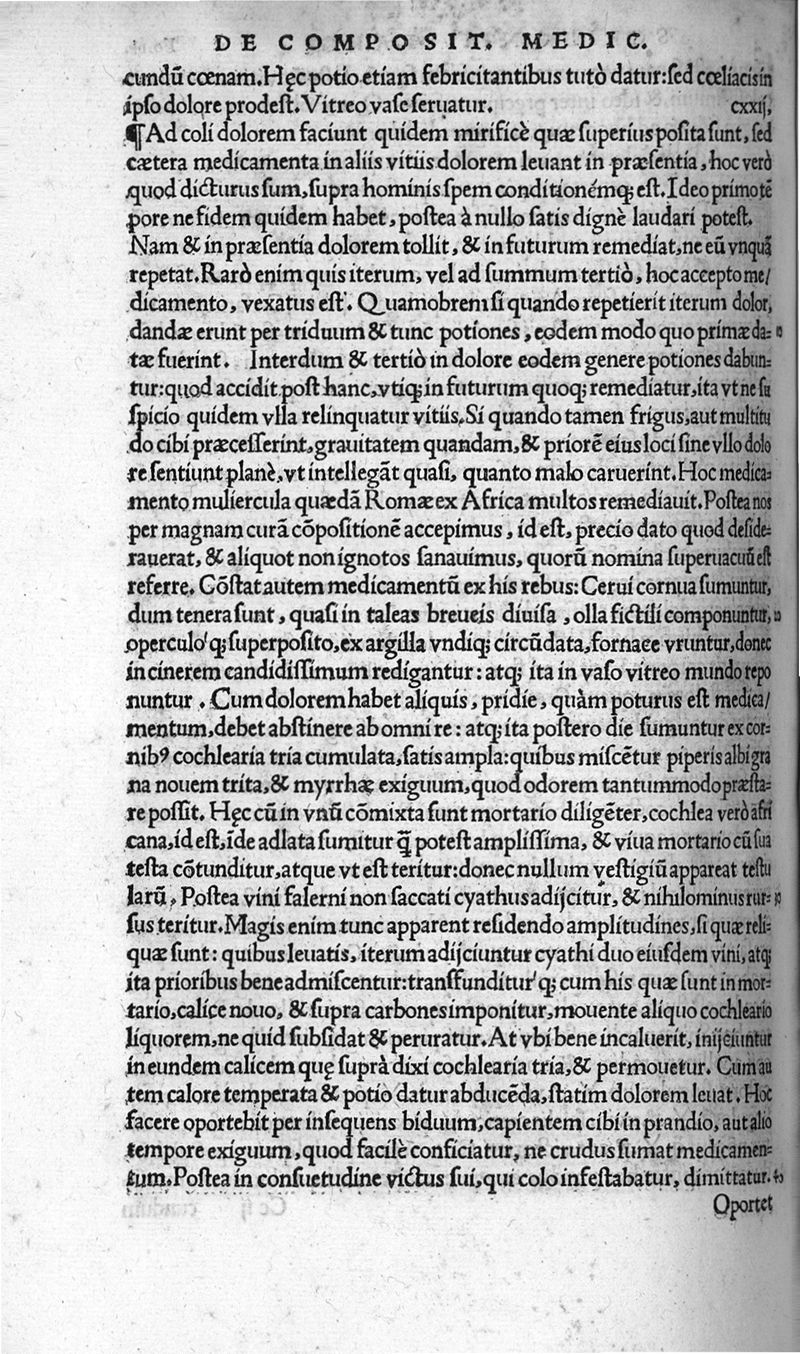 DE COMPOSIT. MEDIC.
cundū cœnam. Hęc potio etiam febricitantibus tutò datur: sed cœliacis in
ipso dolore prodest. Vitreo vase seruatur. cxxij,
¶ Ad coli dolorem faciunt quidem mirificè quæ superius posita sunt, sed
cætera medicamenta in aliis vitiis dolorem leuant in præsentia, hoc verò
quod dicturus sum, supra hominis spem conditionémq; est. Ideo primo tē
pore ne fidem quidem habet, postea à nullo satis dignè laudari potest.
Nam & in præsentia dolorem tollit, & in futurum remediat, ne eū vnquā
repetat. Rarò enim quis iterum, vel ad summum tertiò, hoc accepto me/
dicamento, vexatus est. Quamobrem si quando repetierit iterum dolor,
dandæ erunt per triduum & tunc potiones, eodem modo quo primæ da-
tæ fuerint. Interdum & tertiò in dolore eodem genere potiones dabun-
tur: quod accidit post hanc, vtiq; in futurum quoq; remediatur, ita vt ne su
spicio quidem vlla relinquatur vitiis. Si quando tamen frigus, aut multitu
do cibi præcesserint, grauitatem quandam, & priorē eius loci sine vllo dolo
re sentiunt planè, vt intellegāt quasi, quanto malo caruerint. Hoc medica-
mento muliercula quædā Romæ ex Africa multos remediauit. Postea nos
per magnam curā cōpositionē accepimus, id est, precio dato quod deside-
rauerat, & aliquot non ignotos sanauimus, quorū nomina superuacuū est
referre. Cōstat autem medicamentū ex his rebus: Cerui cornua sumuntur,
dum tenera sunt, quasi in taleas breueis diuisa, olla fictili componuntur,
operculo'q; superposito, ex argilla vndiq; circūdata, fornace vruntur, donec
in cinerem candidissimum redigantur: atq; ita in vaso vitreo mundo repo
nuntur. Cum dolorem habet aliquis, pridie, quàm poturus est medica/
mentum, debet abstinere ab omni re: atq; ita postero die sumuntur ex cor-
nibꝰ cochlearia tria cumulata, satis ampla: quibus miscētur piperis albi gra
na nouem trita, & myrrhæ exiguum, quod odorem tantummodo præsta-
re possit. Hęc cū in vnū cōmixta sunt mortario diligēter, cochlea verò afri
cana, id est, īde adlata sumitur q̄ potest amplissima, & viua mortario cū sua
testa cōtunditur, atque vt est teritur: donec nullum vestigiū appareat testu
larū. Postea vini falerni non saccati cyathus adijcitur, & nihilominus rur-
sus teritur. Magis enim tunc apparent residendo amplitudines, si quæ reli-
quæ sunt: quibus leuatis, iterum adijciuntur cyathi duo eiusdem vini, atq;
ita prioribus bene admiscentur: transfunditur'q; cum his quæ sunt in mor-
tario, calice nouo, & supra carbones imponitur, mouente aliquo cochleario
liquorem, ne quid subsidat & peruratur. At vbi bene incaluerit, inijciuntur
in eundem calicem quę suprà dixi cochlearia tria, & permouetur. Cum au
tem calore temperata & potio datur abducēda, statim dolorem leuat. Hoc
facere oportebit per insequens biduum, capientem cibi in prandio, aut alio
tempore exiguum, quod facilè conficiatur, ne crudus sumat medicamen-
tum. Postea in consuetudine victus sui, qui colo infestabatur, dimittatur.
Oportet